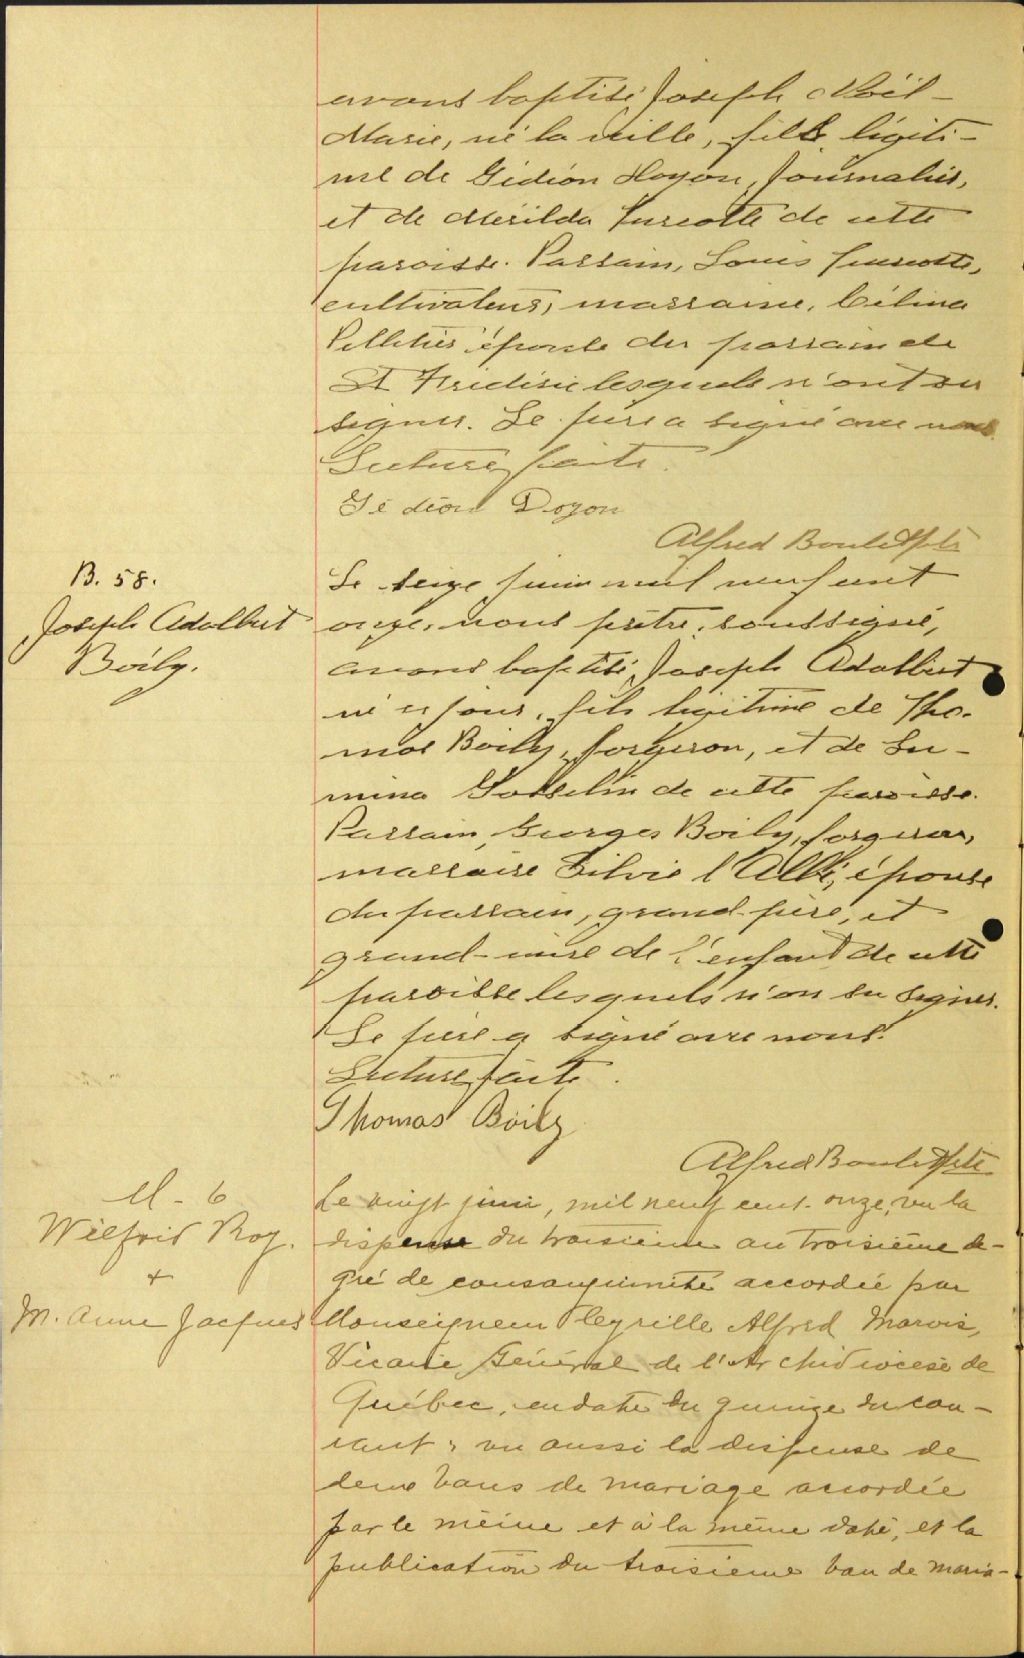 avons baptisé Joseph Noël-
Marie, né la veille, fils légiti-
me de Gédéon Doyon, journalier,
et de Mérilda Turcotte de cette
paroisse. Parrain, Louis Turcotte,
cultivateur, marraine, Célina
Pelletier épouse du parrain de
St Frédéric lesquels n'ont su
signer. Le père a signé avec nous.
Lecture faite.
Gédéon Doyon
Alfred Boulet Ptre
B. 58.
Joseph Adalbert
Boily.
Le seize juin mil neuf cent
onze, nous prêtre, soussigné,
avons baptisé Joseph Adalbert
né ce jour, fils légitime de Tho-
mas Boily, forgeron, et de Lu-
mina Gosselin de cette paroisse.
Parrain, Georges Boily, forgeron,
marraine Silvie l'Abbé, épouse
du parrain, grand-père, et
grand-mère de l'enfant de cette
paroisse lesquels n'on su signer.
Le père a signé avec nous.
Lecture faite.
Thomas Boily
Alfred Boulet Ptre
M - 6
Wilfrid Roy.
+
M. Anne Jacques
Le vingt juin, mil neuf cent onze, vu la
dispense du troisième au troisième de-
gré de consanguinité accordée par
Monseigneur Cyrille Alfred Marois,
Vicaire Général de l'Archidiocèse de
Québec, en date du quinze du cou-
rant; vu aussi la dispense de
deux bans de mariage accordée
par le même et à la même date, et la
publication du troisième ban de maria-